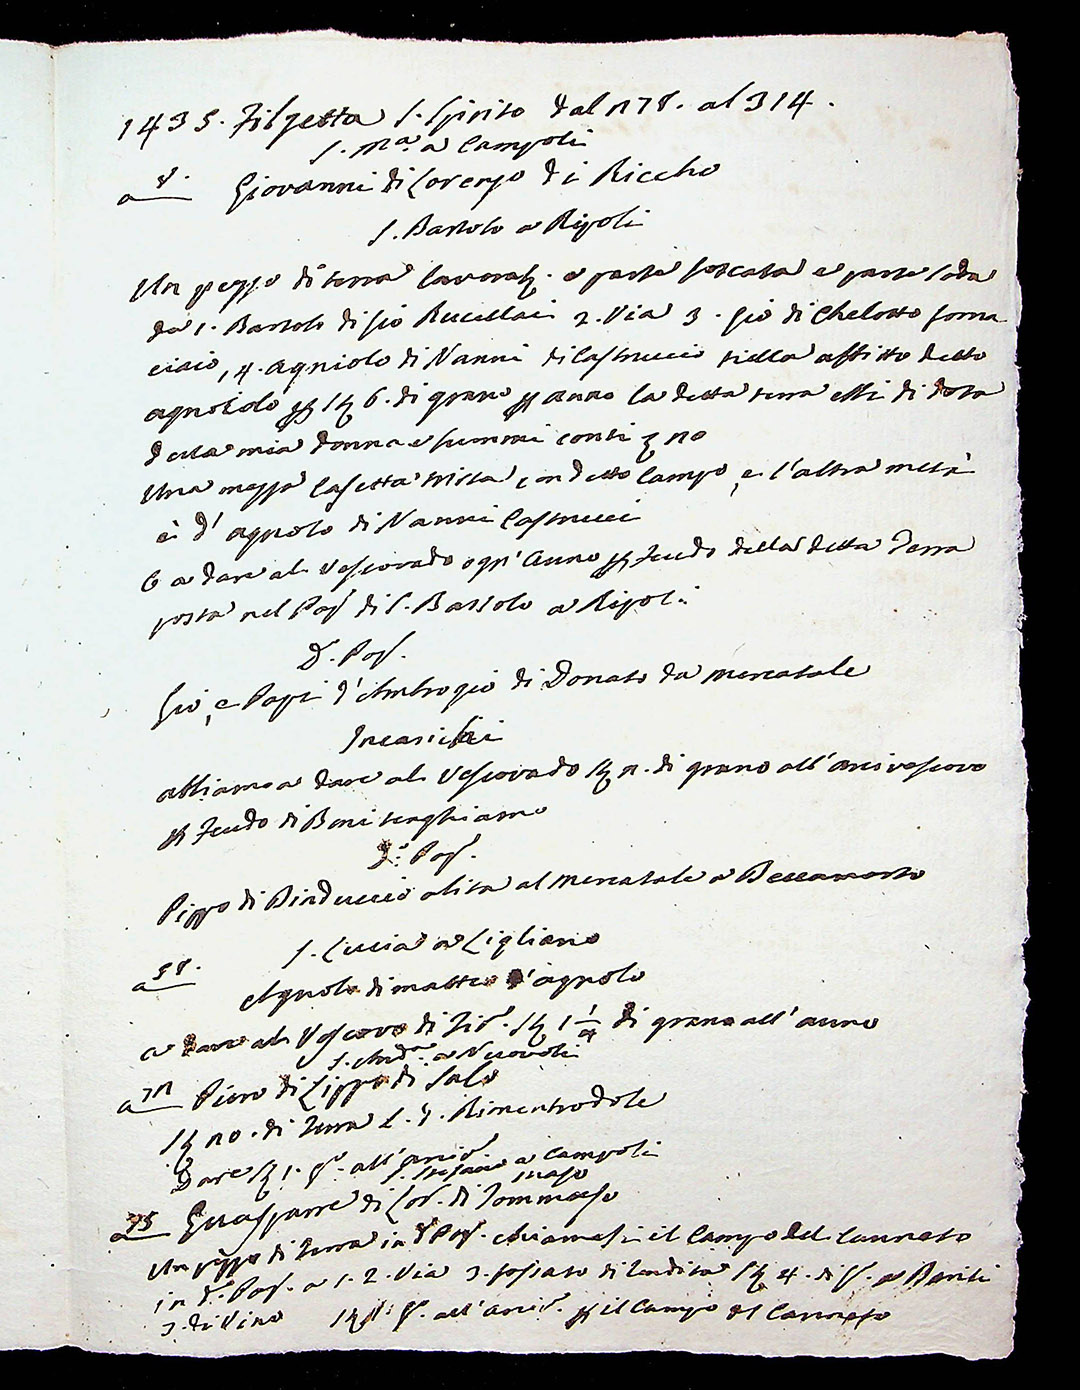 1435. Filzetta S. Spirito dal n 78. al 314.
S. Ma. a Campoli
a 8. Giovanni di Lorenzo di Riccho
S. Bartolo a Ripoli
Un pezzo di terra lavorat. e parte soscata e parte soda
da 1. Bartolo di Gio Rucellai 2. Via 3. Gio di Chelotto forna
ciaio, 4. Agniolo di Nanni di Castruccio tiella affitto detto
agnolo p st 6. di grano p anno la detta terra ebbi di dota
della mia donna e fummi conti
Una mezza Casetta trista con detto Campo, e l'altra metà
è d'agnolo di Nanni Castrucci
E a dare al Vescovado ogn'Anno p Feudo della detta Terra
posta nel Pop. di S. Bartolo a Ripoli
D. Pop.
Gio, e Papi d'Ambrogio di Donato da mercatale
Incarichi
abbiamo a dare al Vescovado st n. di grano all'arcivescovo
p Feudo di Beni tenghiamo
Do. Pop.
Pippo di Binduccio abita al Mercatale a Beccamorto
a 58. S. Luccia a Ligliano
Agnolo di matteo d'agnolo
a dare al Vescovo di Fir. st 1 1/4 di grano all'anno
S. And.a a Nuovoli
a 71 Piero di Lippo di Salo
st no. di Terra L. d. Rimentrodole
Dare st 1. g. all'Arciv.
S. Stefano a Campoli
a 75 Guasparre di Lor. di Tommaso
maso
Un pezzo di terra in d Pop. chiamasi il Campo del Canneto
in d. Pop. a 1. 2. Via 3. fossato di rendita st 4. di g. e Barili
3. di Vino st 1. g. all'Arciv. p il Campo del Canneto